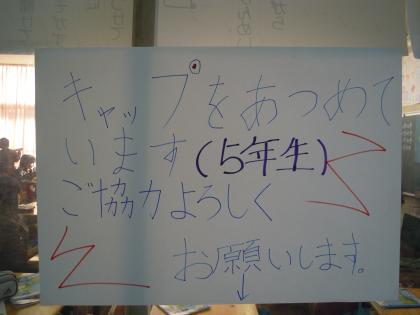 キャップをあつめて
います(5年生)
ご協力よろしく
お願いします。
↓